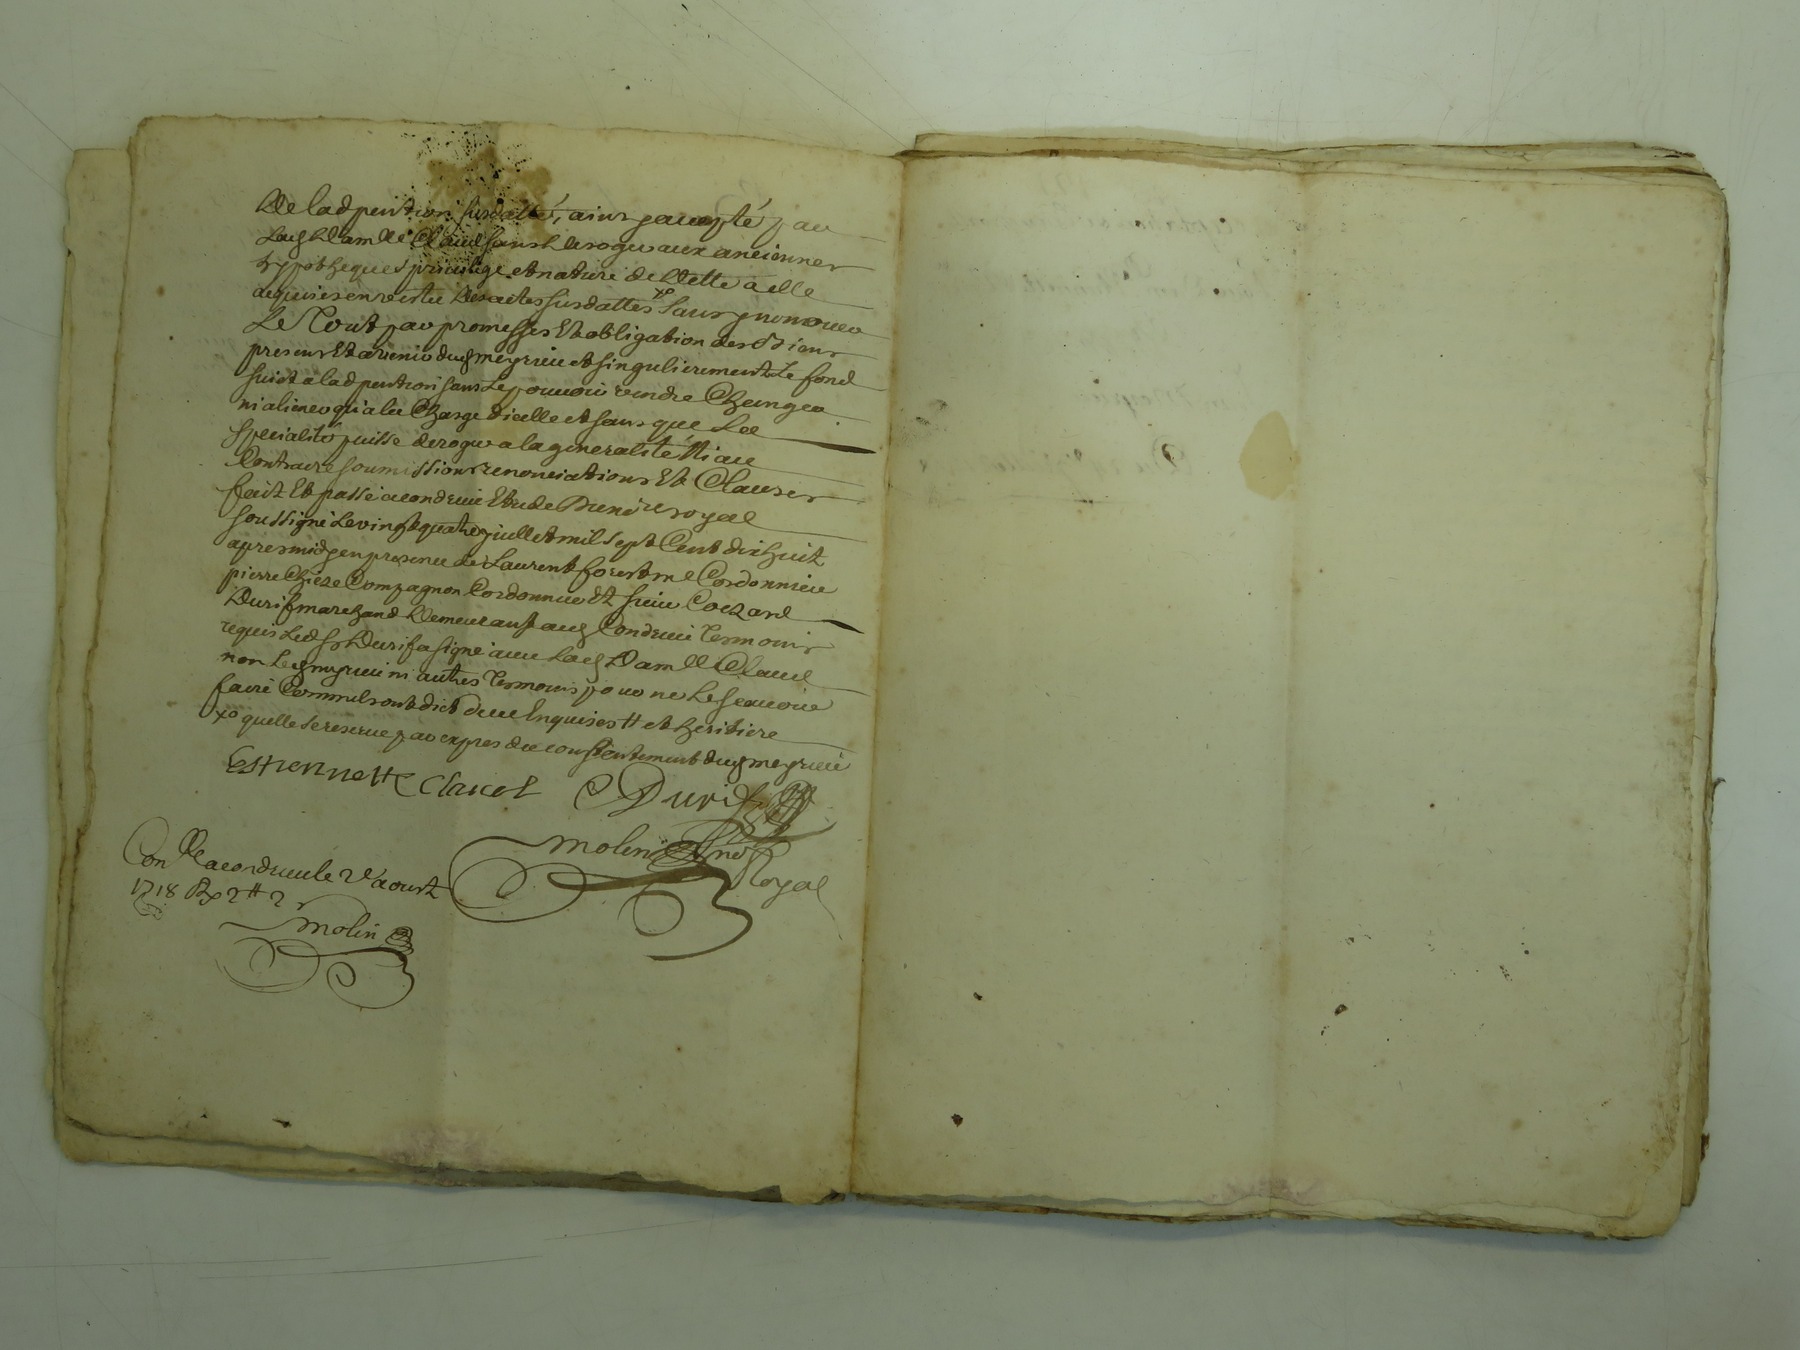 De lad pention susdatté, ains y accepté par
lad Dam.lle Clauel sans deroger aux anciennes
hypotheques priuilege et nature de dette a elle
acquises en vertu des actes susdattes xo sans y innouer
Le Tout par promesses Et obligation des Biens
presens Et avenir dud meyrieu et singulierement Le fond
suiet a lad pention sans Le pouuoir vendre Changer
ni aliener qu'a la Charge d'icelle et sans que La
specialité puisse deroger a la generalité Ni au
Contraire soumissions renonciations Et Clauses
fait Et passé a condrieu Etude Du no.re royal
soussigné Le vingt quatre juillet mil sept Cent dix huit
apres midy en presence de Laurent forest m.e Cordonnier
pierre Chieze Compagnon Cordonnier Et sieur
Durif marchand Demeurant aud Condrieu Tesmoins
requis Led s.r Durif a signé auec lad Dam.lle Clauel
non Led meyrieu ni autres Tesmoins pour ne Le scauoir
faire Comm'ils ont dict de ce Enquis et heritiere
xo quelle se reserue par expres du consentement dud meyrieu
Estiennette Clauel Durif
molin no.re Royal
Con.lle a condrieu le 2e aoust
1718 Rx 2 # 2
molin